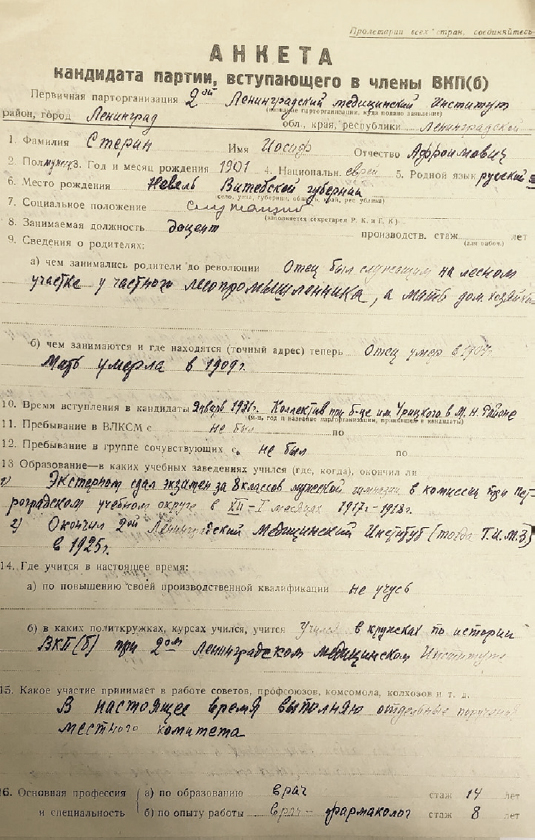 Пролетарии всех стран, соединяйтесь
АНКЕТА
кандидата партии, вступающего в члены ВКП(б)
Первичная парторганизация 2ой Ленинградский медицинский Институт
район, город Ленинград обл., края, республики Ленинградской
1. Фамилия Стерин Имя Иосиф Отчество Афроимович
2. Пол муж 3. Год и месяц рождения 1901 4. Национальн. еврей 5. Родной язык русский
6. Место рождения Невель Витебской губернии
(село, узла, губерния, область, край, республика)
7. Социальное положение служащий
(заполняется секретарем Р. К. и Г. К.)
8. Занимаемая должность доцент производств. стаж лет
9. Сведения о родителях: (для рабоч.)
а) чем занимались родители до революции Отец был служащим на лесном
участке у частного лесопромышленника, а мать дом. хозяйка
б) чем занимаются и где находятся (точный адрес) теперь Отец умер в
Мать умерла в 1909г.
10. Время вступления в кандидаты Январь 1931г. Коллектив при б-це им. Урицкого в М. Н. Районе
11. Пребывание в ВЛКСМ с не был по
12. Пребывание в группе сочувствующих с не был по
13 Образование—в каких учебных заведениях учился (где, когда), окончил ли
1) Экстерном сдал экзамен за 8 классов мужской гимназии в комиссии при Пе-
роградском учебном округе в XII-I месяцах 1917г-1918г.
2) Окончил 2ой Ленинградский Медицинский Институт (тогда Г.И.М.З.)
в 1925г.
14. Где учится в настоящее время:
а) по повышению своей производственной квалификации не учусь
б) в каких политкружках, курсах учился, учится Учился в кружках по истории
ВКП(б) при 2ом Ленинградском медицинском Институте
15. Какое участие принимает в работе советов, профсоюзов, комсомола, колхозов и т. д.
В настоящее время выполняю отдельные поручения
местного комитета
16. Основная профессия и специальность
а) по образованию врач стаж 14 лет
б) по опыту работы врач-фармаколог стаж 8 лет